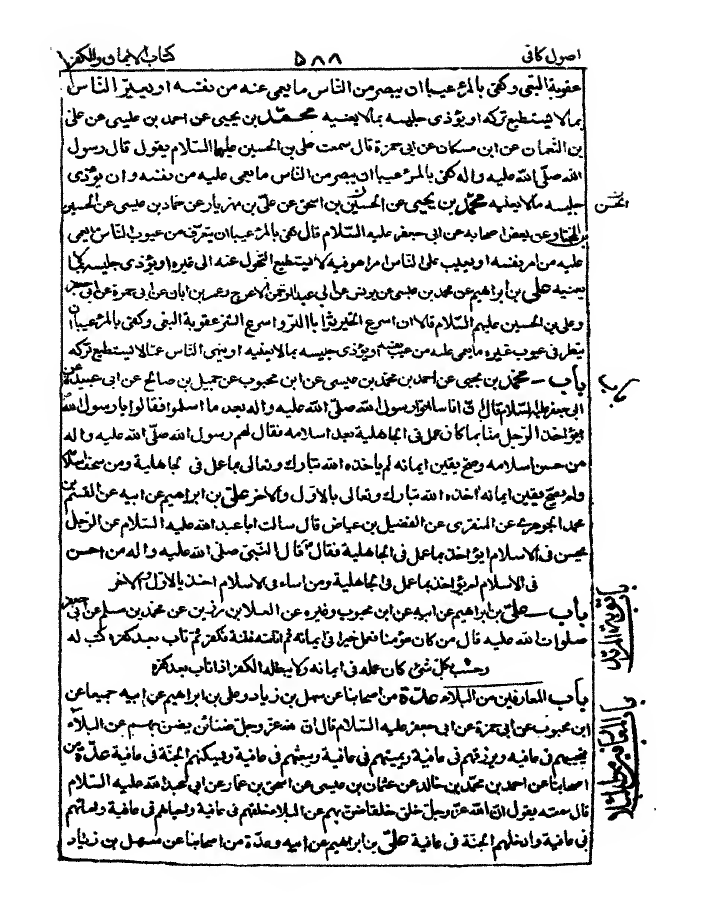 اصول كافى ٥٨٨ كتاب الايمان والكفر
عقوبة البغى وكفى بالمرء عيبا ان يبصر من الناس ما يعمى عنه من نفسه او يعير الناس
بما لا يستطيع تركه او يؤذى جليسه بما لا يعنيه محمد بن يحيى عن احمد بن عيسى عن على
بن النعمان عن ابن مسكان عن ابى حمزة قال سمعت على بن الحسين عليهما السلام يقول قال رسول
الله صلى الله عليه واله كفى بالمرء عيبا ان يبصر من الناس ما يعمى عليه من نفسه وان يؤذى
جليسه بما لا يعنيه محمد بن يحيى عن الحسين بن اسحق عن على بن مهزيار عن حماد بن عيسى عن الحسين
الحسن
بن المختار عن بعض اصحابه عن ابى جعفر عليه السلام قال كفى بالمرء عيبا ان يتعرف من عيوب الناس ما يعمى
عليه من امر نفسه او يعيب على الناس امرا هو فيه لا يستطيع التحول عنه الى غيره او يؤذى جليسه بما لا
يعنيه على بن ابراهيم عن محمد بن عيسى عن يونس عن ابى عبد الرحمن الاعرج وعمر بن ابان عن ابى حمزة عن ابى جعفر
وعلى بن الحسين عليهم السلام قالا ان اسرع الخير ثوابا البر واسرع الشر عقوبة البغى وكفى بالمرء عيبا ان
ينظر فى عيوب غيره ما يعمى عليه من عيب نفسه او يؤذى جليسه بما لا يعنيه او ينهى الناس عما لا يستطيع تركه
باب
باب – محمد بن يحيى عن احمد بن محمد بن عيسى عن ابن محبوب عن جميل بن صالح عن ابى عبيدة عن
ابى جعفر عليه السلام قال ان اناسا اتوا رسول الله صلى الله عليه واله بعد ما اسلموا فقالوا يا رسول الله
ايؤاخذ الرجل منا بما كان عمل فى الجاهلية بعد اسلامه فقال لهم رسول الله صلى الله عليه واله
من حسن اسلامه وصح يقين ايمانه لم ياخذه الله تبارك وتعالى بما عمل فى الجاهلية ومن سخف اسلامه
ولم يصح يقين ايمانه اخذه الله تبارك وتعالى بالاول والاخر على بن ابراهيم عن ابيه عن القسم بن
محمد الجوهرى عن المنقرى عن الفضيل بن عياض قال سالت ابا عبد الله عليه السلام عن الرجل
يحسن فى الاسلام ايؤاخذ بما عمل فى الجاهلية فقال قال النبى صلى الله عليه واله من احسن
فى الاسلام لم يؤاخذ بما عمل فى الجاهلية ومن اساء فى الاسلام اخذ بالاول والاخر
باب توبة المرتد
باب – على بن ابراهيم عن ابيه عن ابن محبوب وغيره عن العلا بن رزين عن محمد بن مسلم عن ابى جعفر
صلوات الله عليه قال من كان مؤمنا فعمل خيرا فى ايمانه ثم اصابته فتنة فكفر ثم تاب بعد كفره كتب له
وحسب بكل شئ كان عمله فى ايمانه ولا يبطله الكفر اذا تاب بعد كفره
باب المعافين من البلاء
باب المعافين من البلاء عدة من اصحابنا عن سهل بن زياد وعلى بن ابراهيم عن ابيه جميعا عن
ابن محبوب عن ابى حمزة عن ابى جعفر عليه السلام قال ان لله عز وجل ضنائن يضن بهم عن البلاء
فيحييهم فى عافية ويرزقهم فى عافية ويميتهم فى عافية ويبعثهم فى عافية ويسكنهم الجنة فى عافية عدة من
اصحابنا عن احمد بن محمد بن خالد عن عثمان بن عيسى عن اسحق بن عمار عن ابى عبد الله عليه السلام
قال سمعته يقول ان الله عز وجل خلق خلقا ضن بهم عن البلاء خلقهم فى عافية واحياهم فى عافية واماتهم
فى عافية وادخلهم الجنة فى عافية على بن ابراهيم عن ابيه وعدة من اصحابنا عن سهل بن زياد